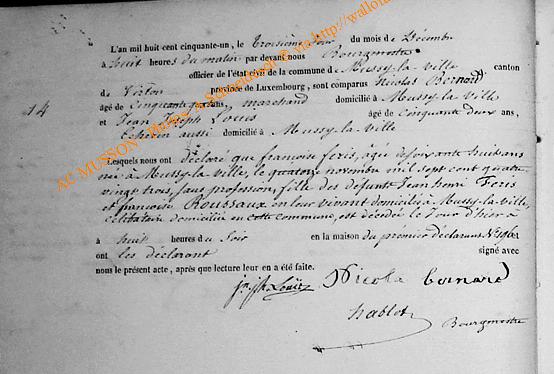 L'an mil huit cent cinquante-un, le troisième jour du mois de Décembre
à huit heures du matin par devant nous Bourgmestre
officier de l'état civil de la commune de Mussy-la-ville canton
de Virton province de Luxembourg, sont comparus Nicolas Bernard
14
âgé de Cinquante ans, marchand domicilié à Mussy-la-Ville
et Jean Joseph Louis âgé de Cinquante deux ans,
Echevin aussi domicilié à Mussy-la-Ville
Lesquels nous ont déclaré que françoise feris, âgée de soixante huit ans
née à Mussy-la-ville, le quatorze novembre mil sept cent quatre
vingt trois, sans profession, fille des defunts Jean henri Feris
et françoise Roussaux en leur vivant domiciliés à Mussy-la-Ville,
célibataire domiciliée en cette commune, est décédée le Jour d'hier à
à huit heures du Soir en la maison du prémier déclarans
signé avec
ont les déclarant
nous le présent acte, après que lecture leur en a été faite.
Nicola bernard
hablot
Bourgmestre
AC MUSSON